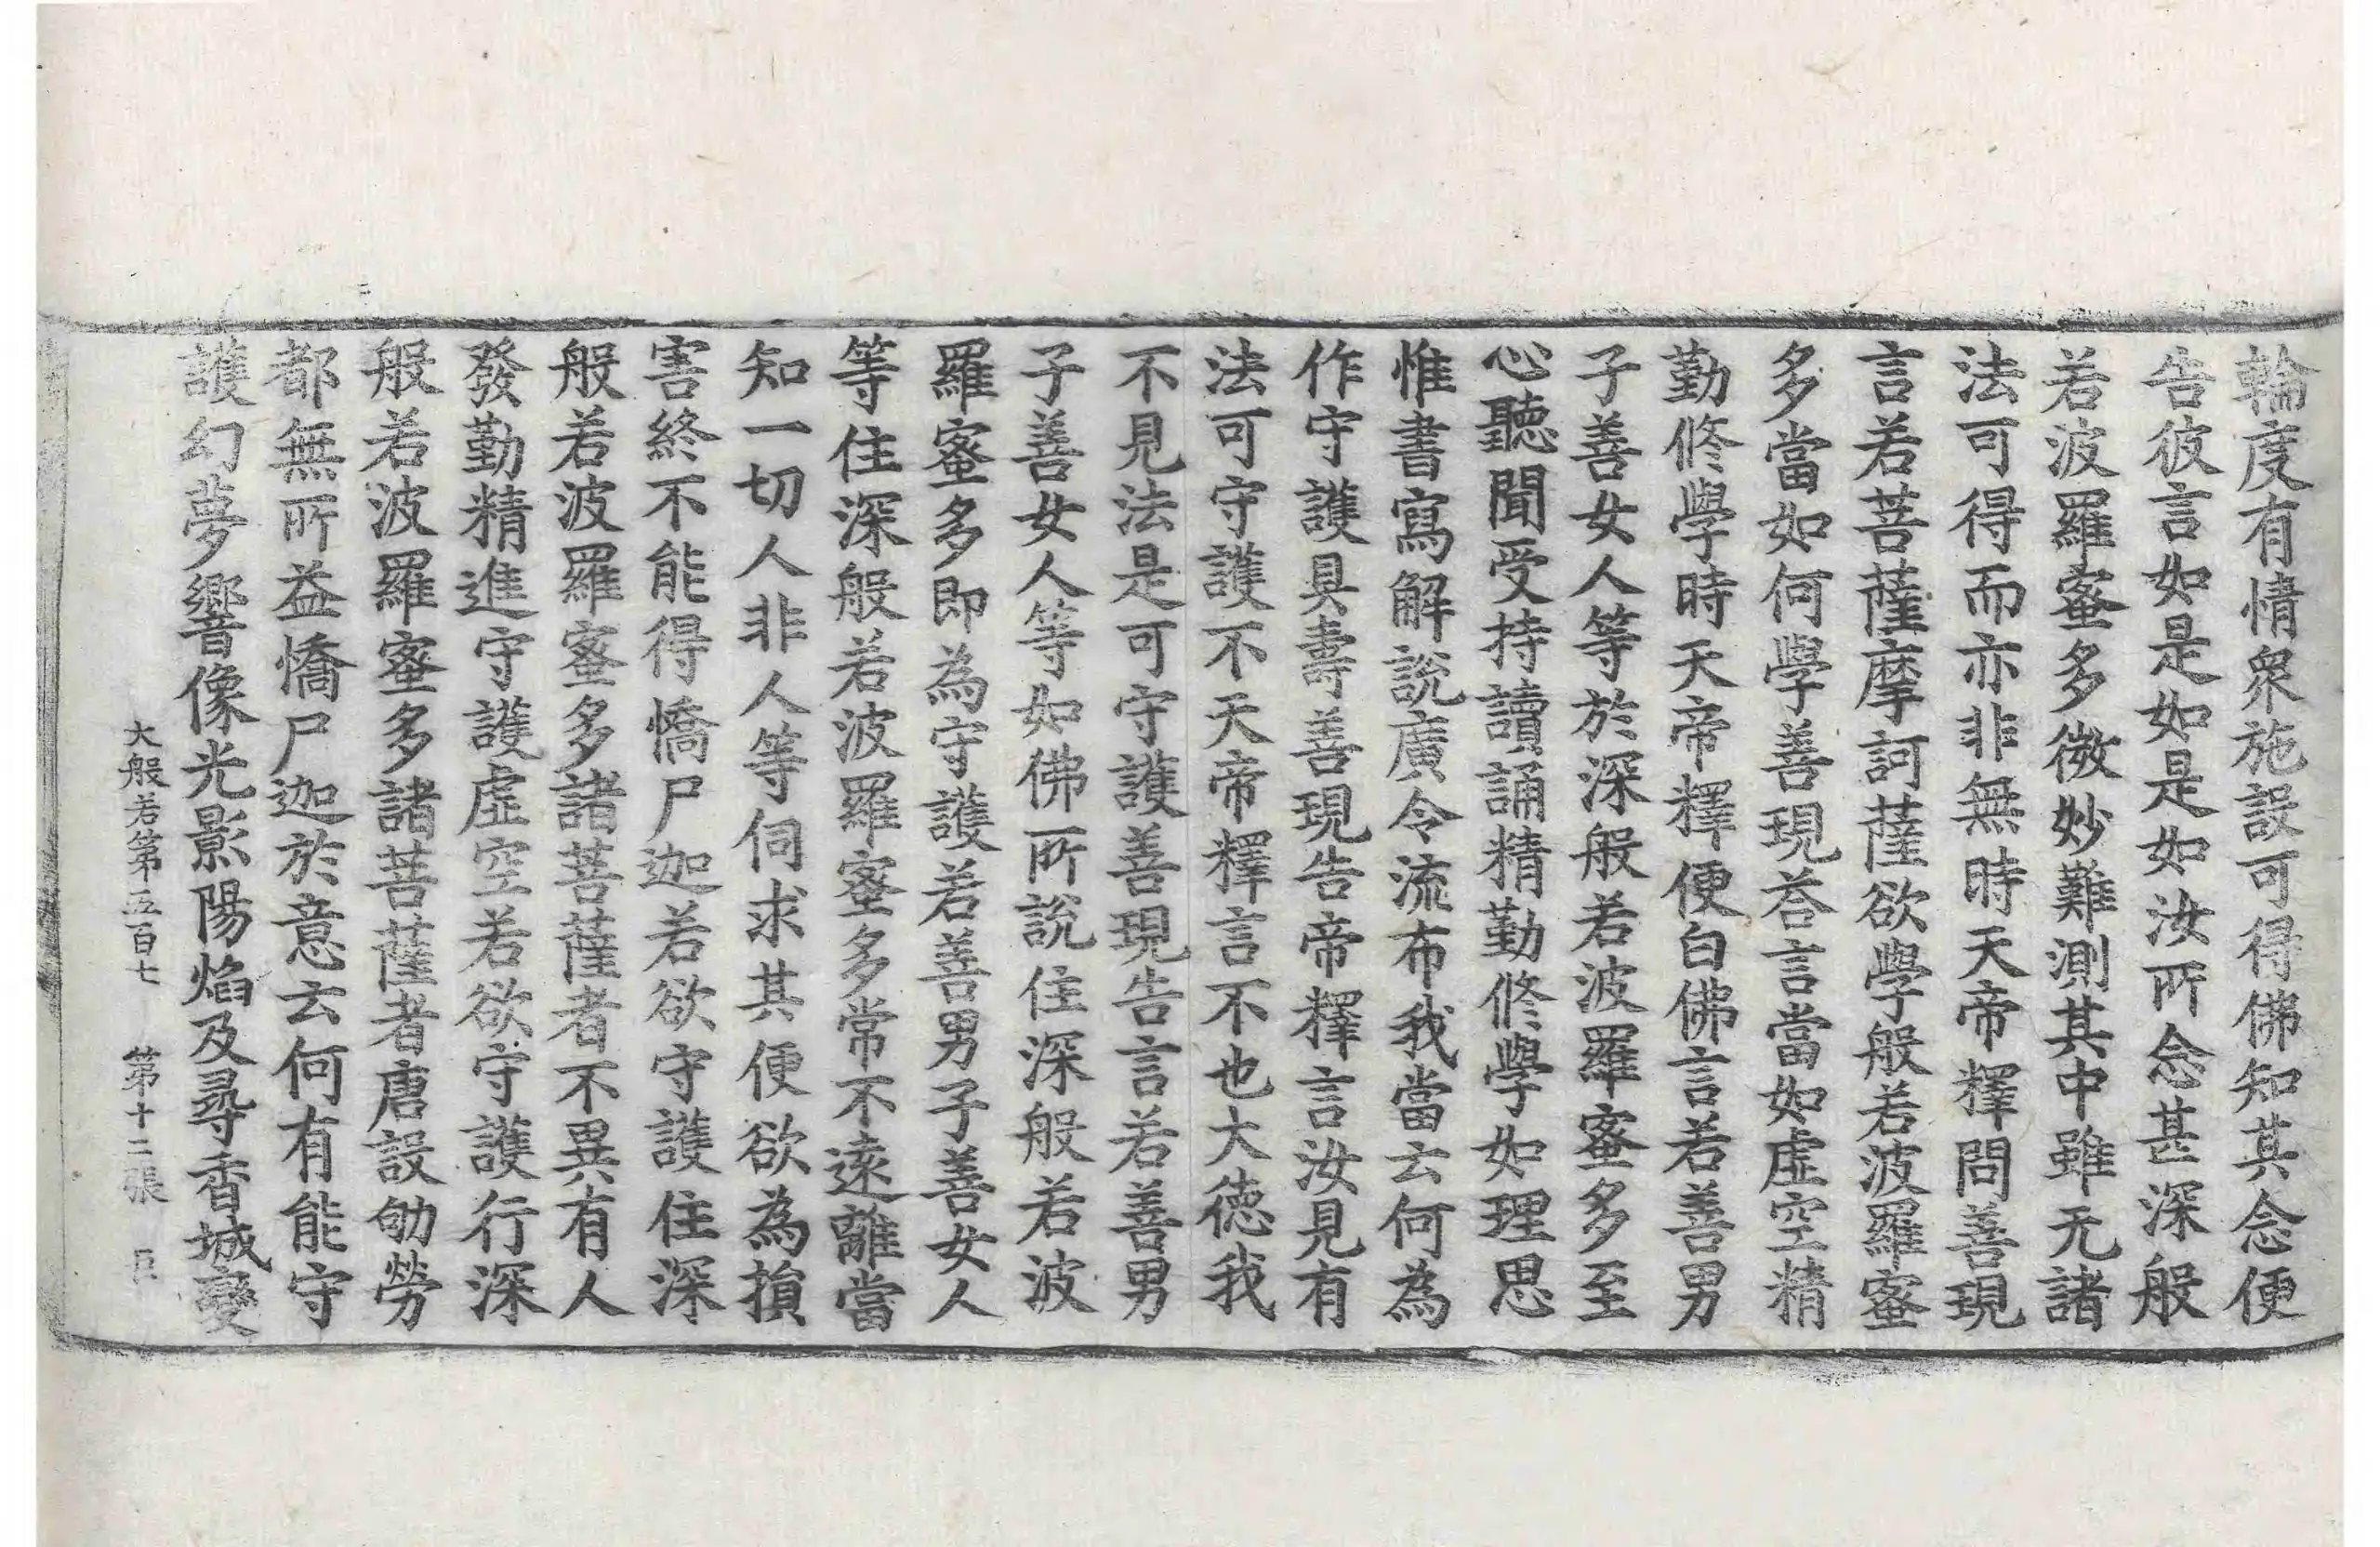 輪度有情衆施設可得佛知其念便
告彼言如是如是如汝所念甚深般
若波羅蜜多微妙難測其中雖无諸
法可得而亦非無時天帝釋問善現
言若菩薩摩訶薩欲學般若波羅蜜
多當如何學善現荅言當如虛空精
勤修學時天帝釋便白佛言若善男
子善女人等於深般若波羅蜜多至
心聽聞受持讀誦精勤修學如理思
惟書寫解說廣令流布我當云何為
作守護具壽善現告帝釋言汝見有
法可守護不天帝釋言不也大德我
不見法是可守護善現告言若善男
子善女人等如佛所說住深般若波
羅蜜多即為守護若善男子善女人
等住深般若波羅蜜多常不遠離當
知一切人非人等伺求其便欲為損
害終不能得憍尸迦若欲守護住深
般若波羅蜜多諸菩薩者不異有人
發勤精進守護虛空若欲守護行深
般若波羅蜜多諸菩薩者唐設劬勞
都無所益憍尸迦於意云何有能守
護幻夢響像光影陽焰及尋香城變
大般若第五百七 第十二張